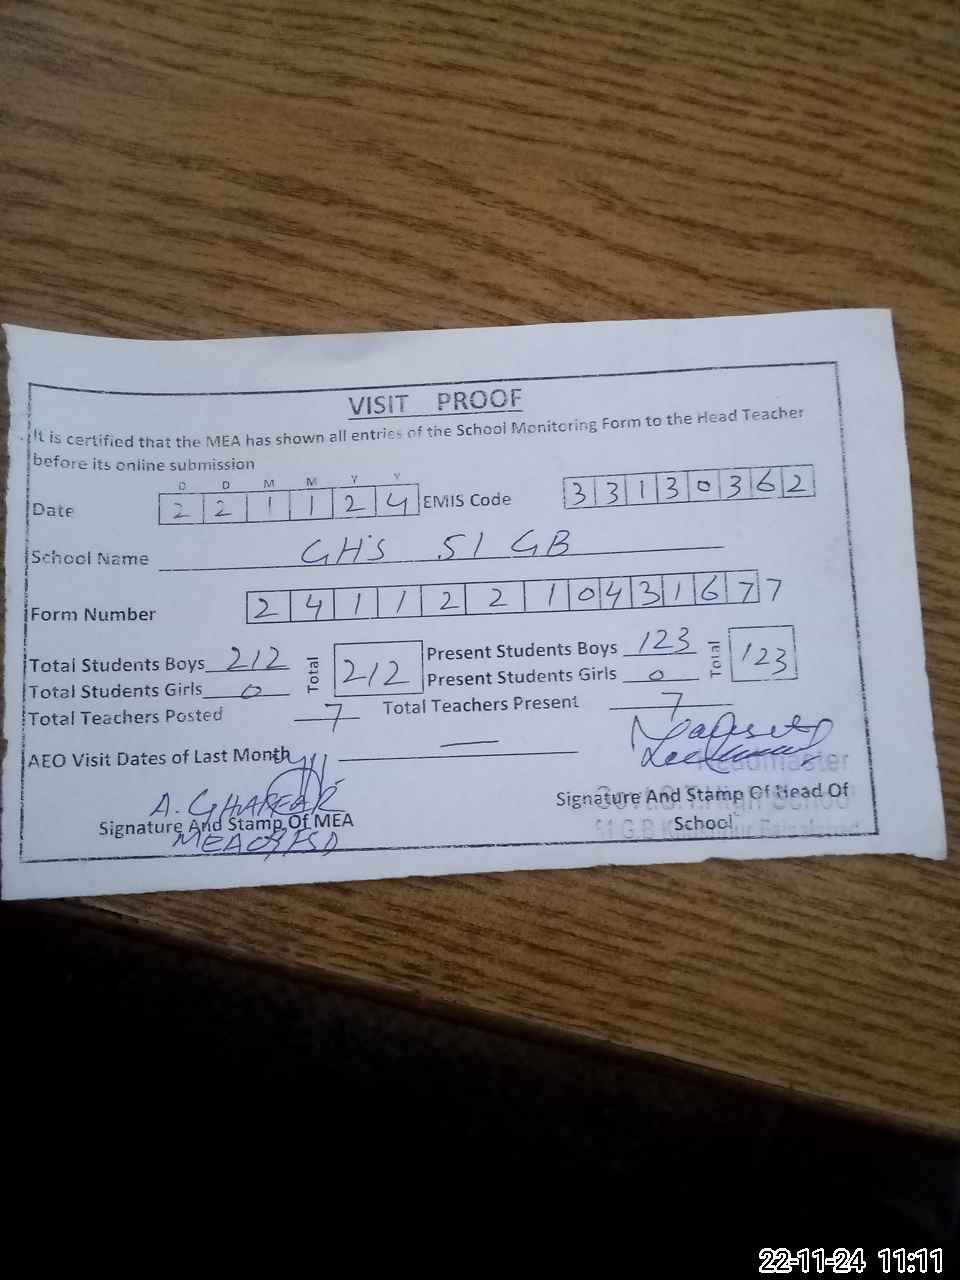 VISIT PROOF
It is certified that the MEA has shown all entries of the School Monitoring Form to the Head Teacher
before its online submission
D D M M Y Y
Date 2 2 1 1 2 4 EMIS Code 3 3 1 3 0 3 6 2
School Name GHS 51 GB
Form Number 2 4 1 1 2 2 1 0 4 3 1 6 7 7
Total Students Boys 212 Total 212 Present Students Boys 123 Total 123
Total Students Girls 0 Present Students Girls 0
Total Teachers Posted 7 Total Teachers Present 7
AEO Visit Dates of Last Month —
Headmaster
A. GHAFFAR
Signature And Stamp Of MEA Signature And Stamp Of Head Of
School
51 G.B
22-11-24 11:11